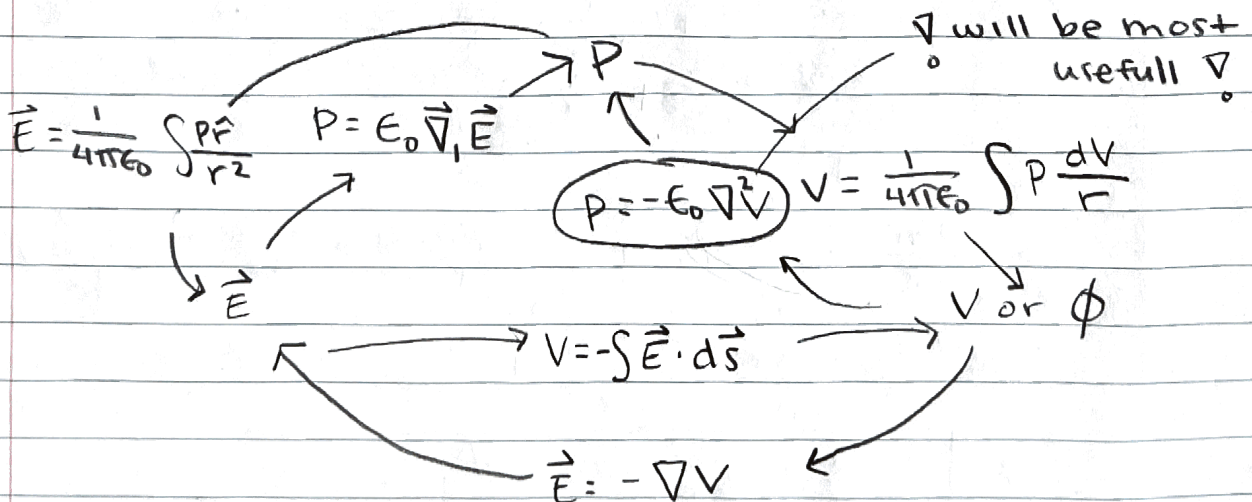 ∇ will be most
usefull ∇
P
E⃗ = 1/4πϵ₀ ∫ Pr̂/r²
P = ϵ₀ ∇⃗, E⃗
P = -ϵ₀ ∇²V
V = 1/4πϵ₀ ∫ P dV/r
E⃗
V or ϕ
V = -∫ E⃗ · ds⃗
E⃗ = - ∇V